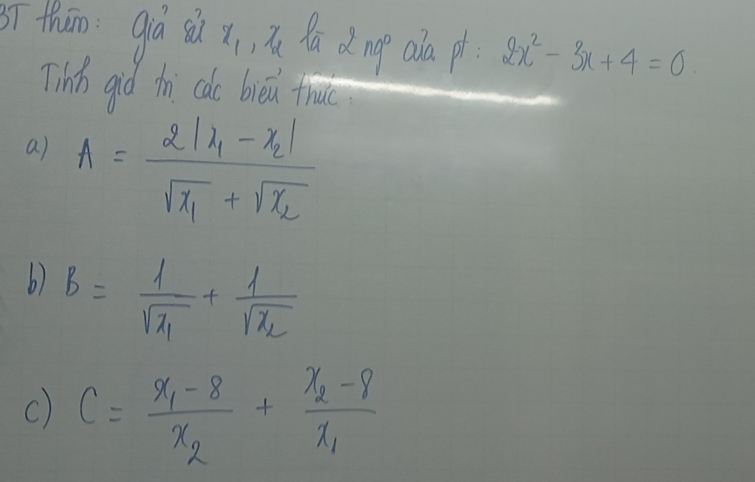 BT thêm: Giả sử x₁, x₂ là 2 ngº của pt: 2x² - 3x + 4 = 0.
Tính giá trị các biểu thức:
a) A = \frac{2|x₁ - x₂|}{\sqrt{x₁} + \sqrt{x₂}}
b) B = \frac{1}{\sqrt{x₁}} + \frac{1}{\sqrt{x₂}}
c) C = \frac{x₁ - 8}{x₂} + \frac{x₂ - 8}{x₁}